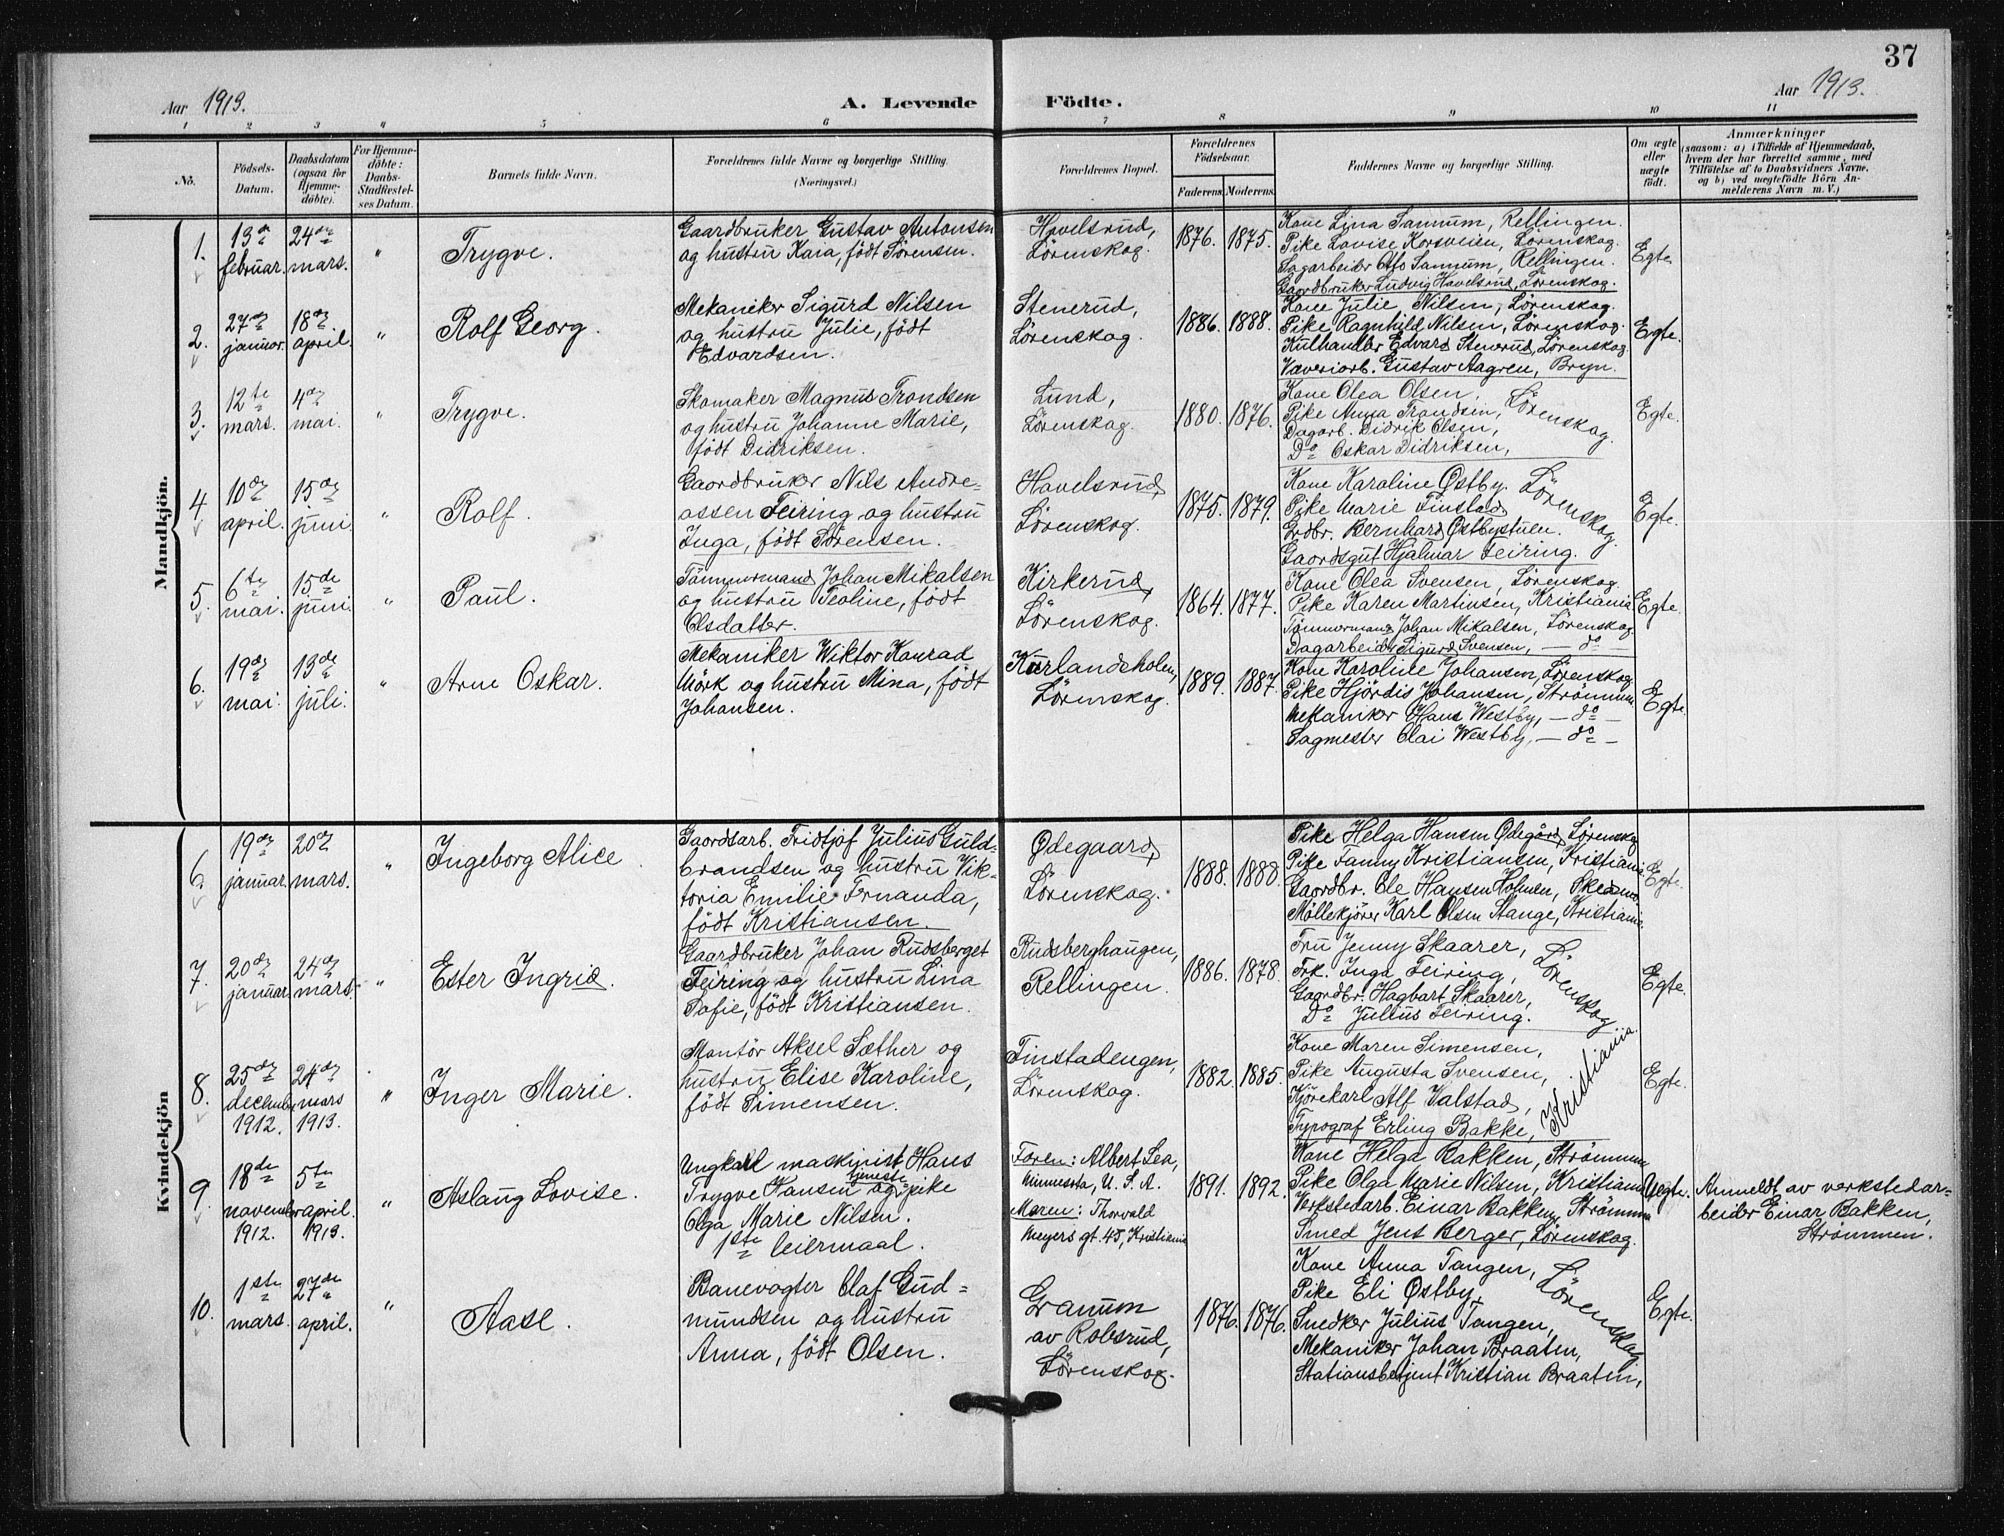 37
Aar 1913.
A. Levende Födte.
Aar 1913.
1 2 3 4 5 6 7 8 9 10 11
No.
Födsels-Datum.
Daabsdatum (ogsaa for Hjemme-döbte).
For Hjemme-döbte: Daabs-Stadfæstelses Datum.
Barnets fulde Navn.
Forældrenes fulde Navne og borgerlige Stilling. (Næringsvei.)
Forældrenes Bopæl.
Forældrenes Födselsaar.
Faderens. Moderens.
Faddernes Navne og borgerlige Stilling.
Om ægte eller uægte födt.
Anmærkninger
(saasom: a) i Tilfælde af Hjemmedaab,
hvem der har forrettet samme, med
Tilföielse af to Daabsvidners Navne,
og b) ved uægtefödte Börn An-
melderens Navn m. V.)
Mandkjön.
1.
13de februar.
24de mars.
"
Trygve.
Gaardbruker Gustav Antonsen
og hustru Kaia, født Sørensen.
Havelsrud,
Lørenskog.
1876. 1875.
Kone Lina Sannum, Rellingen.
Pike Lovise Korsveien, Lørenskog.
Sagarbeider Otto Sannum, Rellingen.
Gaardbruker Ludvig Havelsrud, Lørenskog.
Egte.
2.
27de januar.
18de april.
"
Rolf Georg.
Mekaniker Sigurd Nilsen
og hustru Julie, født
Edvardsen.
Stenerud,
Lørenskog.
1886. 1888.
Kone Julie Nilsen, Lørenskog.
Pike Ragnhild Nilsen, Lørenskog.
Kulhandler Edvard Stenerud, Lørenskog.
Væveriarb. Gustav Aagren, Bryn.
Egte.
3.
12te mars.
4de mai.
"
Trygve.
Skomaker Magnus Trondsen
og hustru Johanne Marie,
født Didriksen.
Lund,
Lørenskog.
1880. 1876.
Kone Olea Olsen,
Pike Anna Trondsen,
Dagarb. Didrik Olsen,
Do Oskar Didriksen,
Lørenskog.
Egte.
4
10de april.
15de juni
"
Rolf.
Gaardbruker Nils Andre-
assen Feiring og hustru
Inga, født Sørensen.
Havelsrud,
Lørenskog.
1875. 1879.
Kone Karoline Østby.
Pike Marie Finstad
Grdbr. Bernhard Østbystuen.
Gaardsgut Hjalmar Feiring.
Lørenskog.
Egte.
5.
6te mai.
15de juni.
"
Paul.
Tømmermand Johan Mikalsen
og hustru Teoline, født
Olsdatter.
Kirkerud,
Lørenskog.
1864. 1877.
Kone Olea Svensen, Lørenskog
Pike Karen Martinsen, Kristiania
Tømmermand Johan Mikalsen, Lørenskog.
Dagarbeider Sigurd Svensen, — do —
Egte.
6.
19de mai.
13de juli.
"
Arne Oskar.
Mekaniker Wiktor Konrad
Mörk og hustru Mina, født
Johansen.
Kurlandsholen,
Lørenskog.
1889. 1887.
Kone Karoline Johansen, Lørenskog
Pike Hjördis Johansen, Strømmen
Mekaniker Hans Westby, — do —
Sagmester Olai Westby, — do —
Egte.
Kvindekjön
6.
19de januar.
20de mars.
"
Ingeborg Alice.
Gaardsarb. Fridtjof Julius Guld-
brandsen og hustru Vik-
toria Emilie Fernanda,
født Kristiansen.
Ødegaard,
Lørenskog.
1888. 1888.
Pike Helga Hansen Ødegård, Lørenskog
Pike Fanny Kristiansen, Kristiania
Gaardbr. Ole Hansen Holmen, Skedsmo
Møllekjører Karl Olsen Stange, Kristiania
Egte.
7.
20de januar.
24de mars.
"
Ester Ingrid.
Gaardbruker Johan Rudsberget
Feiring og hustru Lina
Sofie, født Kristiansen.
Rudsberghaugen,
Rellingen.
1886. 1878.
Fru Jenny Skaarer,
Frk. Inga Feiring,
Gaardbr. Hagbart Skaarer,
Do Julius Feiring.
Lørenskog
Egte.
8.
25de december 1912.
24de mars 1913.
"
Inger Marie.
Montør Aksel Sæther og
hustru Elise Karoline,
født Simensen.
Finstadengen,
Lørenskog.
1882. 1885.
Kone Maren Simensen,
Pike Augusta Svensen,
Kjørekarl Alf Valstad,
Typograf Erling Bakke,
Kristiania.
Egte.
9.
18de november 1912.
5te april. 1913.
"
Aslaug Lovise.
Ungkarl maskinist Hans
Trygve Hansen og tjeneste pike
Olga Marie Nilsen.
1ste leiermaal.
Faren: Albert Lea,
Minnesota, U. S. A.
Moren: Thorvald
Meyers gt. 45, Kristiania
1891. 1892.
Kone Helga Bakken, Strømmen
Pike Olga Marie Nilsen, Kristiania
Verkstedarb. Einar Bakken, Strømmen
Smed Jens Berger, Lørenskog.
Uegte.
Anmeldt av verkstedar-
beider Einar Bakken,
Strømmen.
10.
1ste mars.
27de april.
"
Aase.
Banevogter Olaf Gud-
mundsen og hustru
Anna, født Olsen.
Granum
av Robsrud,
Lørenskog.
1876. 1876.
Kone Anna Tangen,
Pike Eli Østby,
Snedker Julius Tangen,
Mekaniker Johan Braaten,
Stationsbetjent Kristian Braaten,
Lørenskog
Egte.